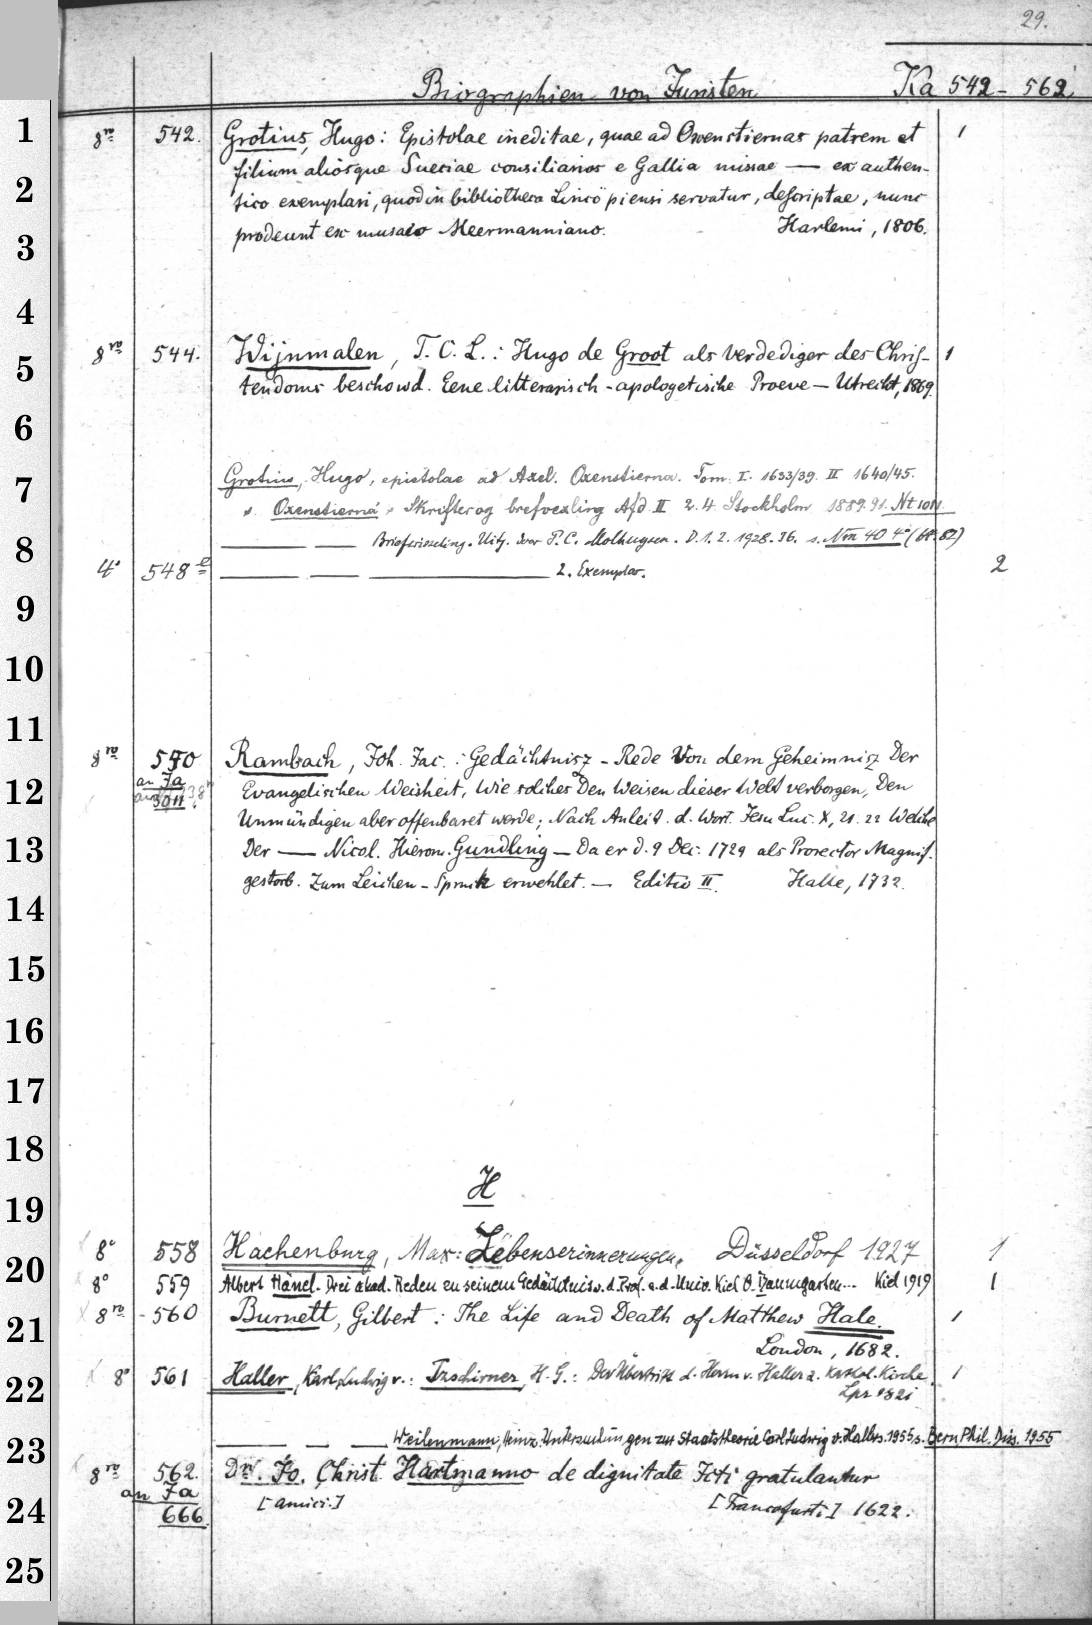 29.
Biographien von Juristen Ka 542 - 562.
1 8vo 542. Grotius, Hugo: Epistolae ineditae, quae ad Oxenstiernas patrem et 1
filium aliosque Sueciae consiliarios e Gallia missae — ex authen-
2 tico exemplari, quod in bibliotheca Lincöpiensi servatur, descriptae, nunc
3 prodeunt ex musaeo Meermanniano. Harlemi, 1806.
4
5 8vo 544. Wijnmalen, T. C. L.: Hugo de Groot als verdediger des Chris- 1
tendoms beschowd. Eene litterarisch-apologetische Proeve — Utrecht, 1869.
6
7 Grotius, Hugo, epistolae ad Axel. Oxenstierna. Tom. I. 1633/39. II 1640/45.
Oxenstierna Skrifter og brefvexling Afd. II 2. 4. Stockholm 1889. 91. Nt 1011
8 — — Briefwisseling. Uitg. door P. C. Molhuysen. D. 1. 2. 1928. 36. s. Nm 40 4° (64.82)
4° 548 e — — — 2. Exemplar. 2
9
10
11
8vo 550 Rambach, Joh. Jac.: Gedächtnisz-Rede Von dem Geheimnisz Der
an Ja
12 3011 Evangelischen Weisheit, Wie solches Den Weisen dieser Welt verborgen, Den
Unmündigen aber offenbaret werde; Nach Anleit. d. Wort. Jesu Luc. X, 21. 22 Welche
13 Der — Nicol. Hieron. Gundling — Da er d. 9 Dec. 1729 als Prorector Magnif.
gestorb. Zum Leichen-Spruch erwehlet. — Editio II. Halle, 1732.
14
15
16
17
18
19 H
8° 558 Hachenburg, Max: Lebenserinnerungen. Düsseldorf 1927 1
20 8° 559 Albert Hänel. Drei akad. Reden zu seinem Gedächtnis v. d. Prof. a. d. Univ. Kiel O. Baumgarten... Kiel 1919 1
21 8vo 560 Burnett, Gilbert: The Life and Death of Matthew Hale. 1
London, 1682.
22 8° 561 Haller, Karl Ludwig v.: Tzschirner, H. G.: Der Übertritt d. Herrn v. Haller z. kathol. Kirche. 1
Lpz 1821
23 — — — Weilenmann, Heinz: Untersuchungen zur Staatstheorie Carl Ludwig v. Hallers. 1955 s. Bern Phil. Diss. 1955
8vo 562. Dn. Jo. Christ. Hartmanno de dignitate Icti gratulantur
an Ja
24 666. [amici.] [Francofurti] 1622.
25